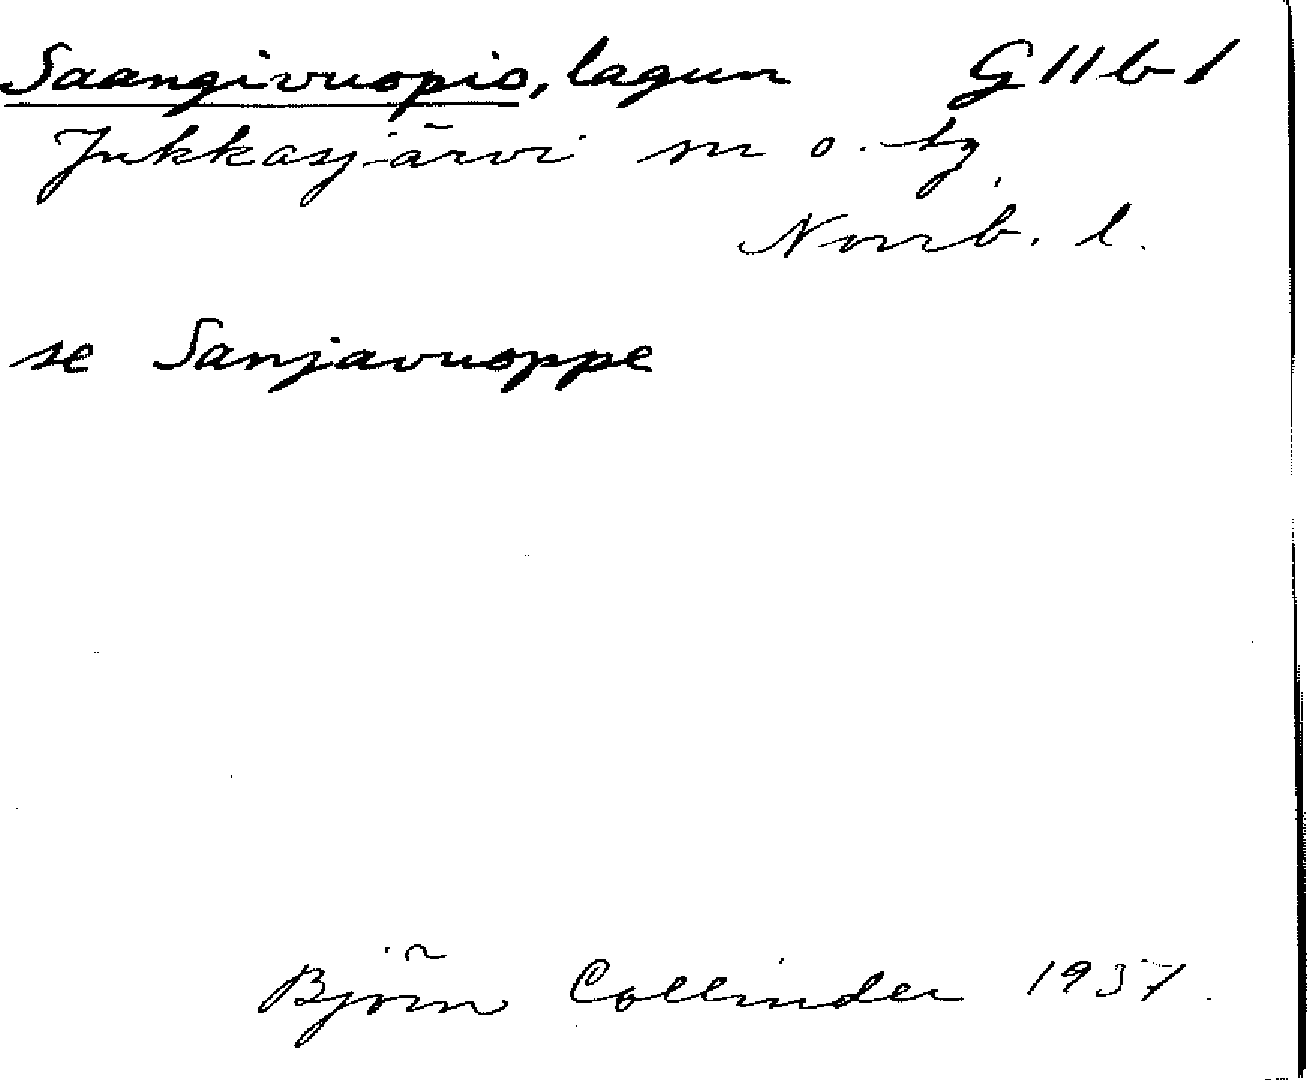 Saangivuopio, lagun G 11 b 1
Jukkasjärvi sn o. tg,
Norrb. l.
se Sanjavuoppe
Björn Collinder 1937.